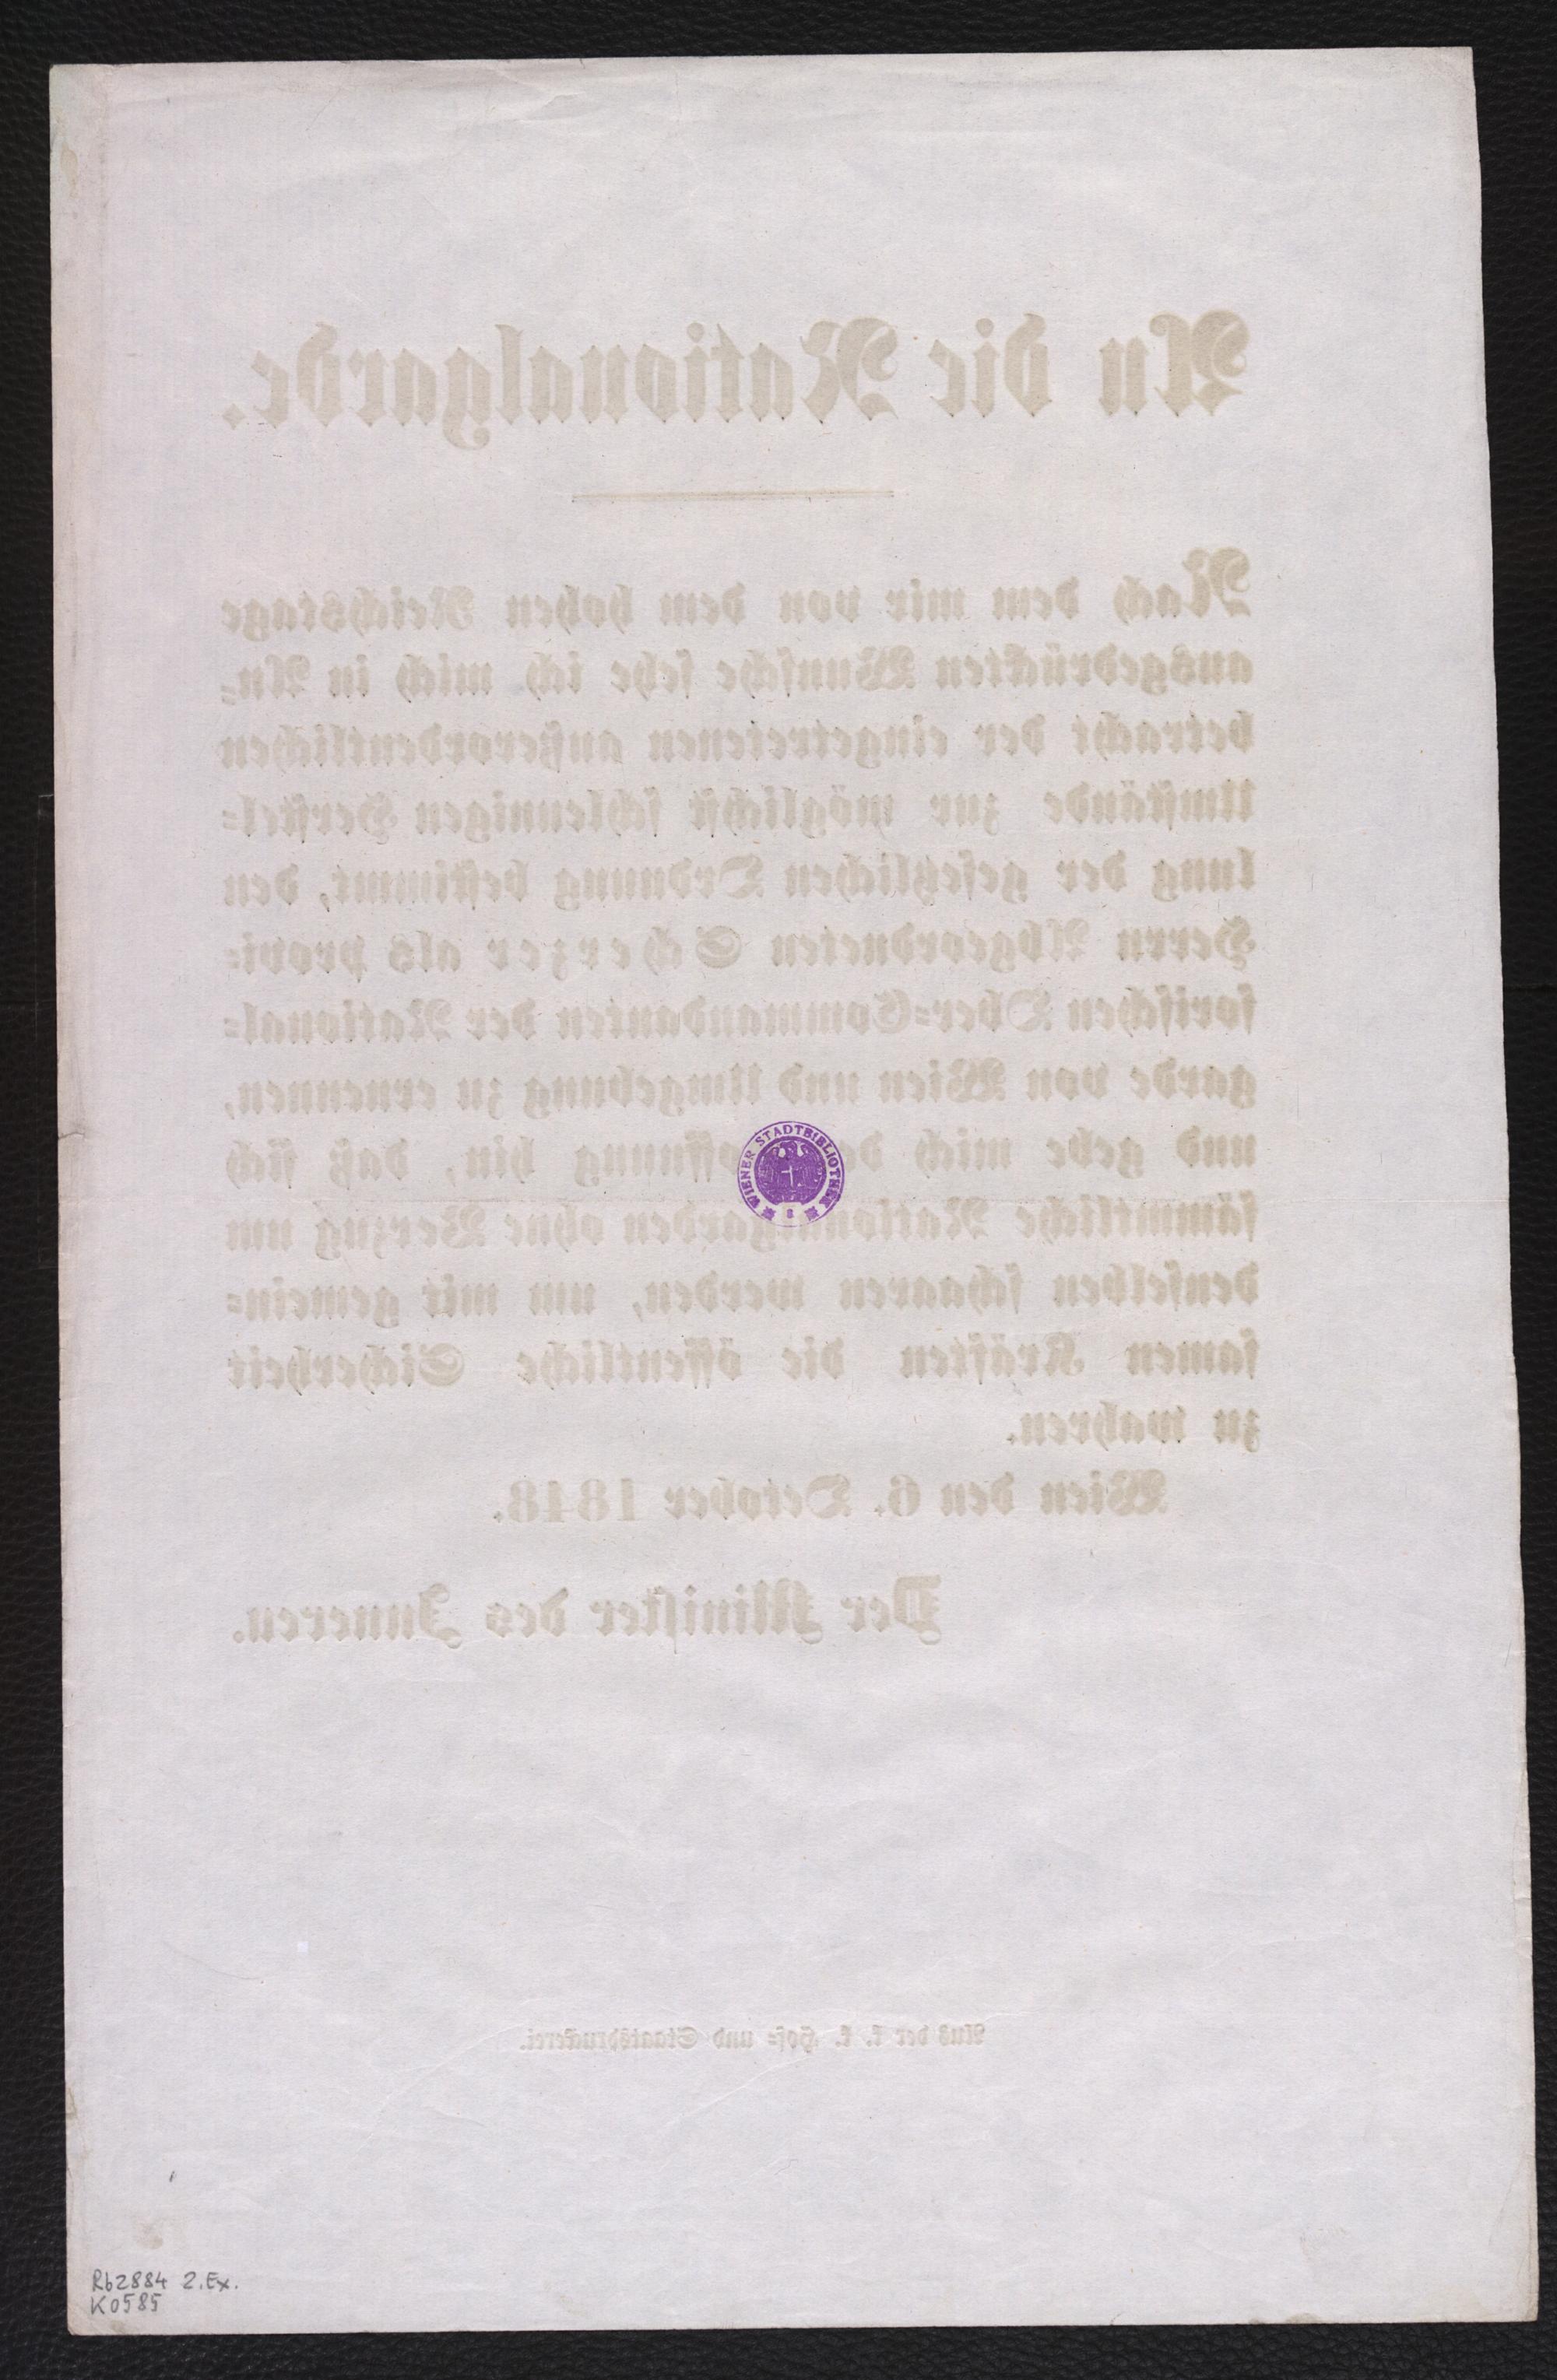 An die Nationalgarde.
Nach dem mir von dem hohen Reichstage
ausgedrückten Wunsche sehe ich mich in An-
betracht der eingetretenen außerordentlichen
Umstände zur möglichst schleunigen Herstel-
lung der gesetzlichen Ordnung bestimmt, den
Herrn Abgeordneten Scherzer als provi-
sorischen Ober-Commandanten der National-
garde von Wien und Umgebung zu ernennen,
und gebe mich der Hoffnung hin, daß sich
sämmtliche Nationalgarden ohne Verzug um
denselben schaaren werden, um mit gemein-
samen Kräften die öffentliche Sicherheit
zu wahren.
Wien den 6. October 1848.
Der Minister des Inneren.
Aus der k. k. Hof- und Staatsdruckerei.
WIENER STADTBIBLIOTHEK
Rb2884 2.Ex.
K0585